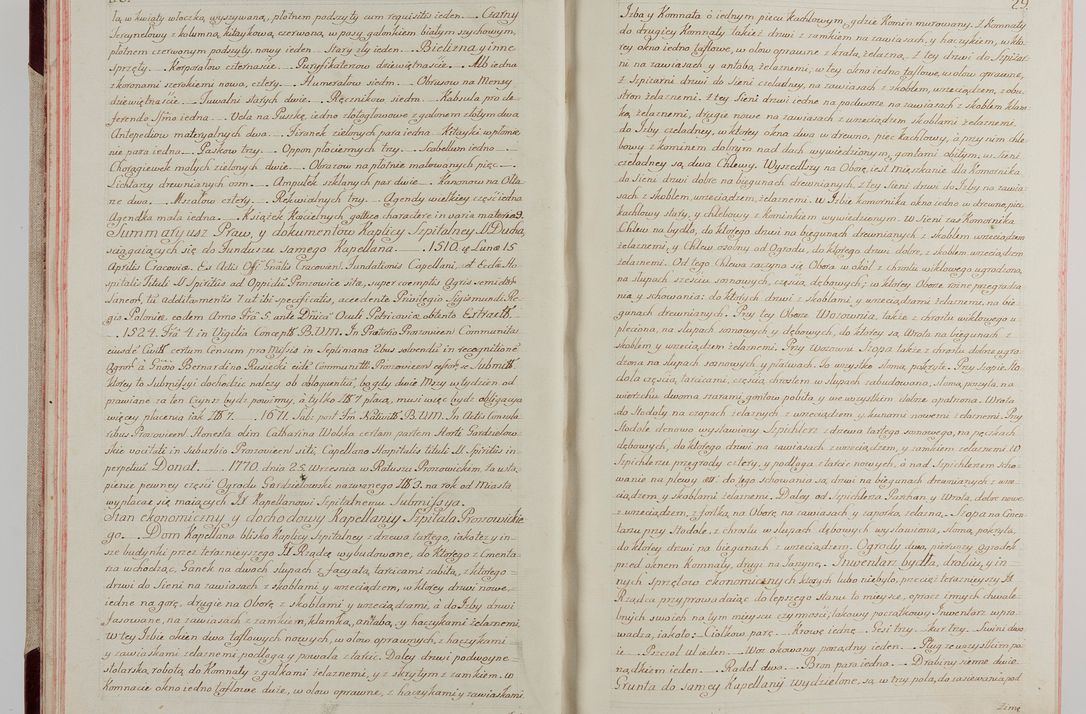 ła, w kwiaty włoczką wyszywaną, płotnem podszyty cum requisitis ieden. Czarny
Terynelowy z kolumną kitaykową, czerwoną, w pasy galonkiem białym szychowym,
płotnem czerwonym podszyty, nowy ieden. Stary zły ieden. Bielizna y inne
sprzęty. Korporałow czternaście. Puryfikaterzow dziewiętnaście. Alb iedna
z koronami szerokiemi nowa, cztery. Humerałow siedm. Obrusow na Mensy
dziewiętnaście. Tuwalni starych dwie. Ręcznikow siedm. Kabsuła pro de-
ferendo Sſmo iedna. Vela na Puszkę, iedno złotogłowowe z galonem złotym dwa
Antepediow materyalnych dwa. Firanek zielonych para iedna. Kitayki w płomie
nie para iedna. Paskow trzy. Oppon płociennych trzy. Scabellum iedno
Chorągiewek małych zielonych dwie. Obrazow na płotnie malowanych pięć
Lichtarzy drewnianych osm. Ampułek szklanych par dwie. Kanonow na Ołta-
rze dwa. Mszałow cztery. Rekwialnych trzy. Agendy wielkiey część iedna
Agendka mała iedna. Książek Kościelnych gottico charactere in varia materia 3.
Summaryusz Praw, y dokumentow Kaplicy Szpitalney S. Ducha,
sciągaiących się do Funduszu samego Kapellana. 1510. ę Lunæ 15
Aprilis Cracoviæ. Ex Actis Offi Gnalis Cracovien. Fundationis Capellani, et Ecclæ Ho-
spitalis Tituli S. Spiritûs ad Oppidũ Proszovice sita, super coemptis Agris
Laneor, cũ additamentis 7 utibi specificatis, accedente Privilegio Sigismundi Re-
gis Poloniæ eodem Anno Frâ 5. ante Dñicã Oculi Petricoviæ obtento Extractt.
1524. Frâ 4. in Vigilia Concepts B. V. M. In Prætorio Proszovicen Communitas
eiusdẽ Civitt. certum Censum pro Missis in Septimana Ebus solvendũ in recognitionẽ
Agror â Gnôso Bernardino Rusiecki eidẽ Communitti Proszovicen
ktorey to Submissyi dochodzić należy ob obloquentiã, bo gdy dwie Mszy w tydzien od
prawiane za ten Czynsz bydz powinny, a tylko Złł 7 płacą, musi więc bydz obligacya
więcey płacenia iak Złł 7. 1671. Sab. post Fm Nativitt B. V. M. In Actis Consula-
ribus Proszovicen. Honesta olim Catharina Wolska certam partem Horti Gardzielow-
skie vocitati in Suburbio Proszovicen siti, Capellano Hospitalis tituli S. Spiritûs in
perpetuũ Donat. 1770. dnia 25. Wrzesnia w Ratuszu Proszowickim, za ustą-
pienie pewney części Ogrodu Gardzielowski nazwanego Złł 3. na rok od Miasta
wypłacać się maiących X Kapellanowi Szpitalnemu Submissya.
Stan ekonomiczny y dochodowy Kapellanyi Szpitala Proszowickie-
go. Dom Kapellana blisko Kaplicy Szpitalney z drzewa tartego, iako też y in-
sze budynki przez teraznieyszego X Rządcę wybudowane, do ktorego z Cmenta-
rza wchodząc, Ganek na dwoch słupach z facyatą, tarcicami zabitą, z ktorego
drzwi do Sieni na zawiasach z skoblami y wrzeciądzem, w ktorey drzwi nowe,
iedne na gorę, drugie na Oborę z skoblami y wrzeciądzami, a do Izby drzwi
fasowane, na zawiasach z zamkiem, klamką, antabą, y haczykami żelaznemi,
w tey Izbie okien dwa taflowych nowych, w ołow oprawnych, z haczykami
y zawiaskami żelaznemi, podłoga y powała z tarcic. Daley drzwi podwoyne
stolarską robotą do Komnaty z gałkami żelaznemi, y z skrytym zamkiem. w
Komnacie okno iedno taflowe duże, w ołow oprawne, z haczykami y zawiaskami
29
Izba y Komnata o iednym piecu kachlowym, gdzie Komin murowany. Z Komnaty
do drugiey Komnaty także drzwi z zamkiem na zawiasach, y haczykiem, w kto-
rey okno iedno taflowe, w ołow oprawne z kratą żelazną. Z tey drzwi do Szpiżar
ni na zawiasach y antabą żelaznemi, w tey okno iedno taflowe, w ołow oprawne,
z Szpiżarni drzwi do Sieni czeladney, na zawiasach z skoblem, wrzeciądzem, z obu-
stron żelaznemi. Z tey Sieni drzwi iedne na podworze na zawiasach z skoblem klam-
ką, żelaznemi, drugie nowe na zawiasach z wrzeciądzem skoblami żelaznemi,
do Izby czeladney, w ktorey okna dwa w drewno, piec kachlowy, a przy nim chle-
bowy z kominem dobrym nad dach wywiedzionym, gontami obitym, w Sieni
czeladney są dwa Chlewy. Wyszedłszy na Oborę, iest mięszkanie dla Komornika,
do Sieni drzwi dobre na biegunach drewnianych, z tey Sieni drzwi do Izby na zawia-
sach z skoblem, wrzeciądzem, żelaznemi. W Izbie komornika okno iedne w drewno, piec
kachlowy stary, y chlebowy z kominkiem wywiedzionym. W Sieni zas Komornika
Chlew na bydło, do ktorego drzwi na biegunach drewnianych z skoblem wrzeciądzem
żelaznemi, y Chlew osobny od Ogrodu, do ktorego drzwi dobre, z skoblem, wrzeciądzem
żelaznemi. Od tego Chlewa zaczyna się Obora w okoł z chrostu wiklowego ugrodzona,
na słupach szesciu sosnowych, częścią dębowych; w ktorey Oborze rożne przegrodze
nia, y schowania; do ktorych drzwi z skoblami, y wrzeciądzami żelaznemi, na bie-
gunach drewnianych. Przy tey Oborze Wozownia, także z chrostu wiklowego u-
pleciona, na słupach sosnowych y dębowych, do ktorey są Wrota na biegunach z
skoblem y wrzeciądzem żelaznemi. Przy Wozowni Szopa także z chrostu dobrze ugro-
dzona na słupach sosnowych y płatwach. To wszystko słomą pokryte. Przy Szopie Sto-
doła częścią, tarcicami, częścią chrostem w słupach zabudowana, słomą poszyta, na
wierzchu dwoma szarami gontow pobita, y we wszystkim dobrze opatrzona. Wrota
do Stodoły na czopach żelaznych z wrzeciądzem, y kunami nowemi żelaznemi. Przy
Stodole denowo wystawiony Szpichlerz z drzewa tartego sosnowego, na peckach
dębowych, do ktorego drzwi na zawiasach z wrzeciądzem, y zamkiem żelaznemi. W
Szpichlerzu przegrody cztery, y podłoga z tarcic nowych, a nad Szpichlerzem scho-
wanie na plewy, do tego schowania są drzwi na biegunach drewnianych z wrze-
ciądzem, y skoblami żelaznemi. Daley od Szpichlerza Parkan, y Wrota, dobre nowe
z wrzeciądzem, z fortką na Oborę, na zawiasach y zaporką żelazną. Szopa na Cmen-
tarzu przy Stodole, z chrostu w słupach dębowych wystawiona, słomą pokryta,
do ktorey drzwi na biegunach z wrzeciądzem. Ogrody dwa, pierwszy Ogrodek
przed oknem Komnaty, drugi na Jarzynę. Inwentarz bydła, drobiu, y in-
nych sprzętow ekonomicznych ktorych lubo niebyło, przecięż teraznieyszy X
Rządca przyprowadzaiąc do lepszego stanu to mieysce, oprocz innych chwale-
bnych swoich na tym mieyscu czynnosci, takowy początkowy Inwentarz wpro-
wadza, iako to: Ciołkow parę. Krowę iednę. Gęsi trzy. Kur trzy. Świni dwo-
ie. Pszczoł Ul ieden. Woz okowany porządny ieden. Pług ze wszystkim po-
rządkiem ieden. Radeł dwa. Bron para iedna. Drabiny sienne dwie.
Grunta do samey Kapellanyi wydzielone, są w trzy pola, do zasiewania pod
Zimę